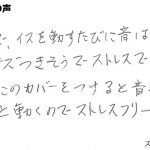 の声
で、イスを動すたびに音は
ズつきそうでストレスで
このカバーをつけると音
と動くのでストレスフリー
ス